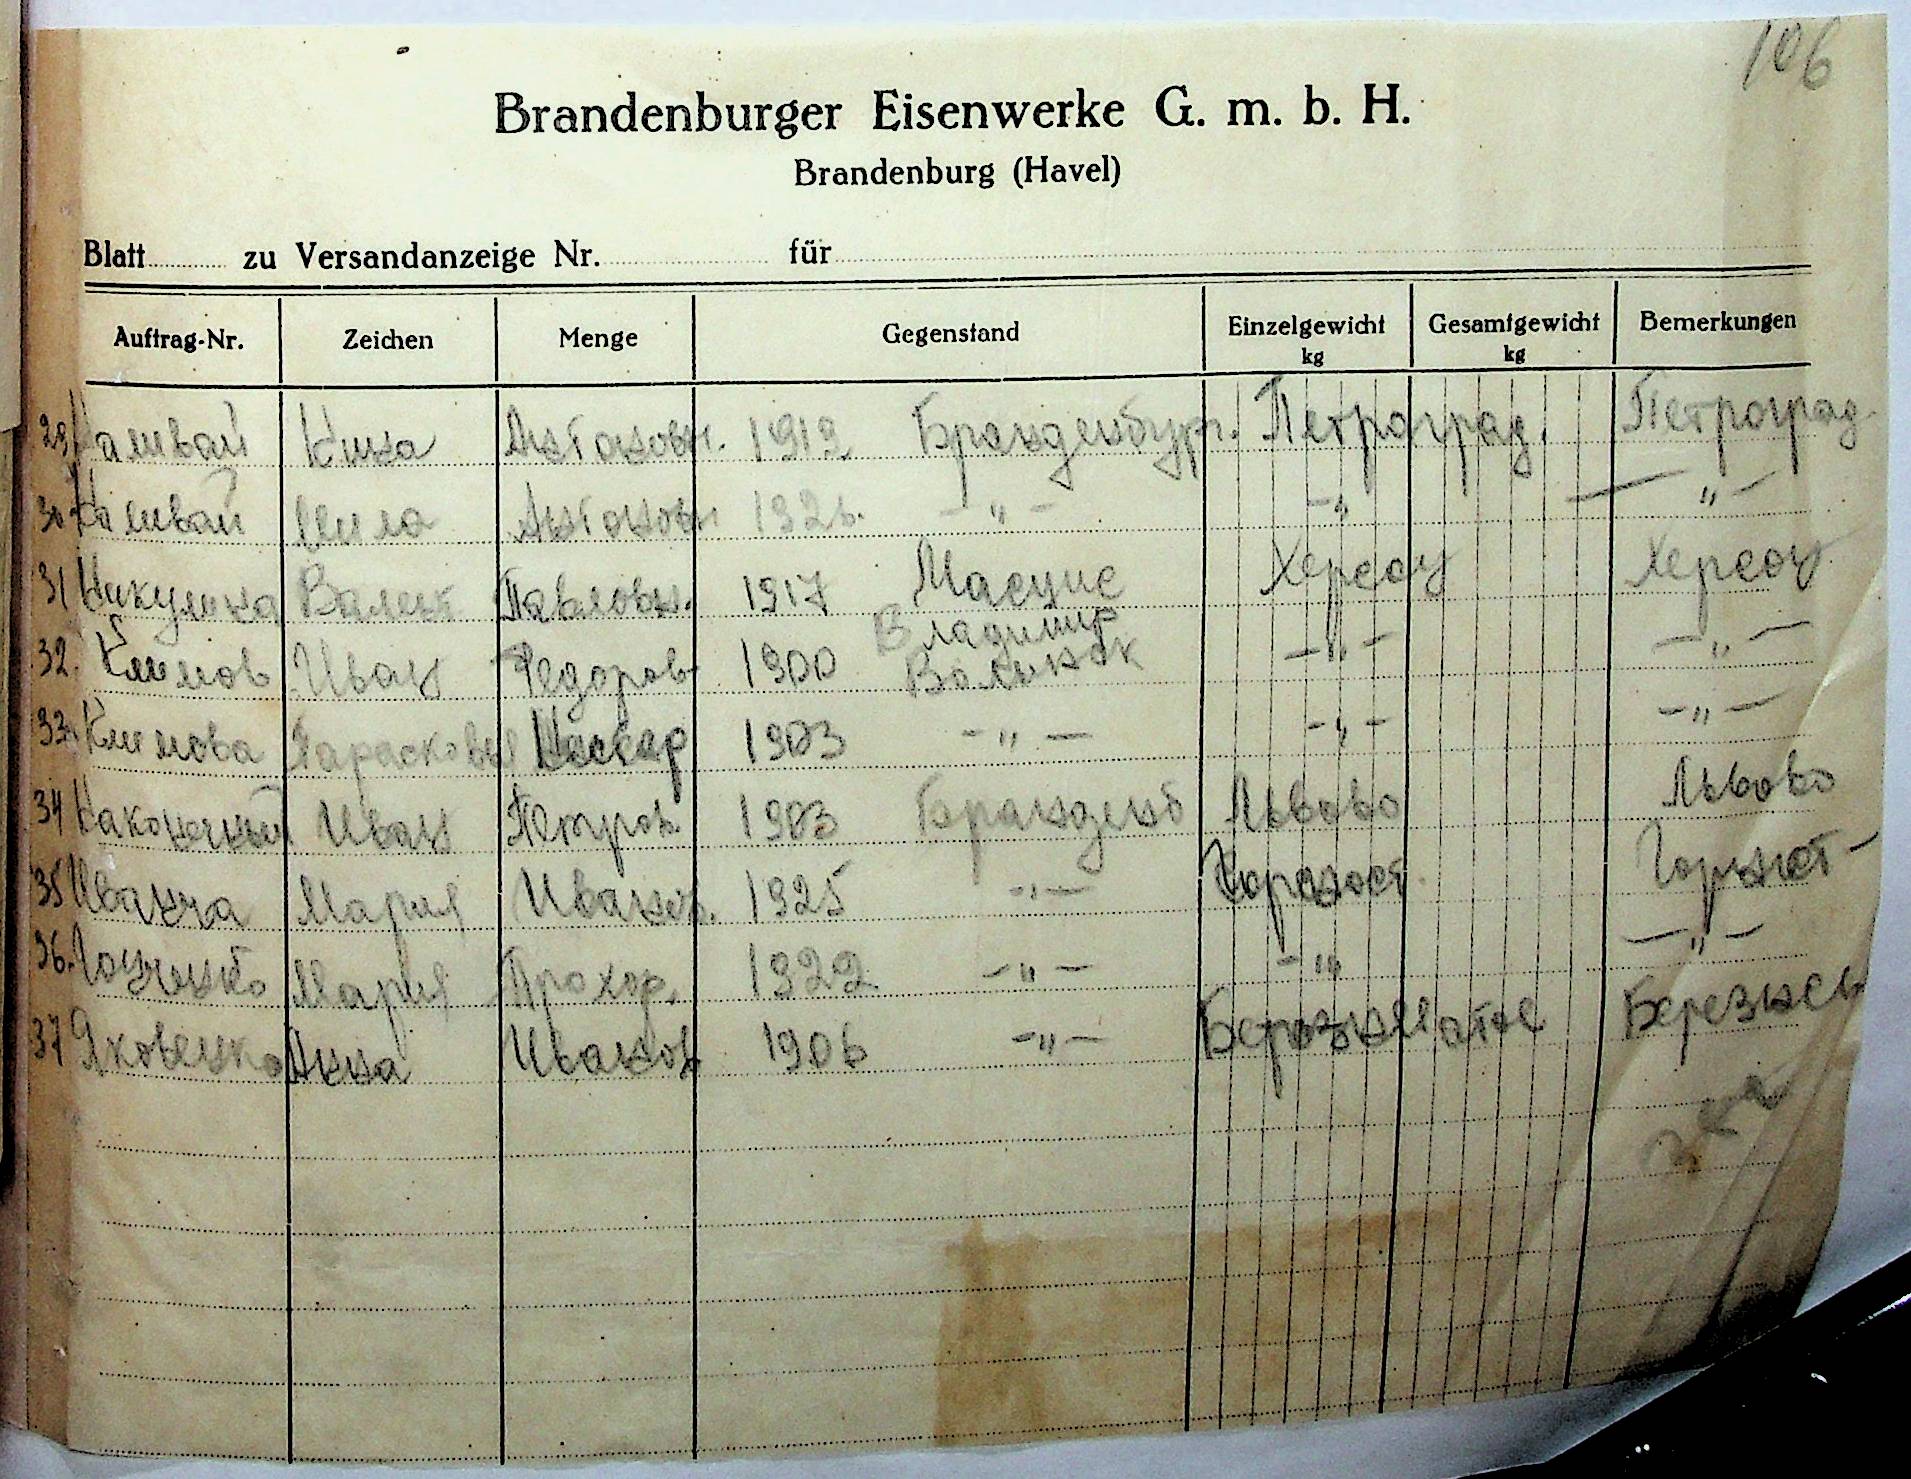 106
Brandenburger Eisenwerke G. m. b. H.
Brandenburg (Havel)
Blatt zu Versandanzeige Nr. für
Auftrag-Nr. Zeichen Menge Gegenstand Einzelgewicht kg Gesamtgewicht kg Bemerkungen
29 Наливай Нина Антоновн. 1919 Бранденбург. Петроград. Петроград
30 Наливай Антоновн 192 -"- -"- -"-
31 Никулина Павловн. 1917 Херсон Херсон
Владимир
32. Климов Иван Федоров 1900 Волынск -"- -"-
33 Климова Парасковья 1903 -"- -"- -"-
34 Наконечный Иван Петров 1903 Бранденб Львово Львово
35 Иванча Мария Иванов. 1925 -"- Горност. Горност-
36. Мария Прохор. 1922 -"- -"- -"-
37 Яковенко Анна Иванов 1906 -"- Березнь